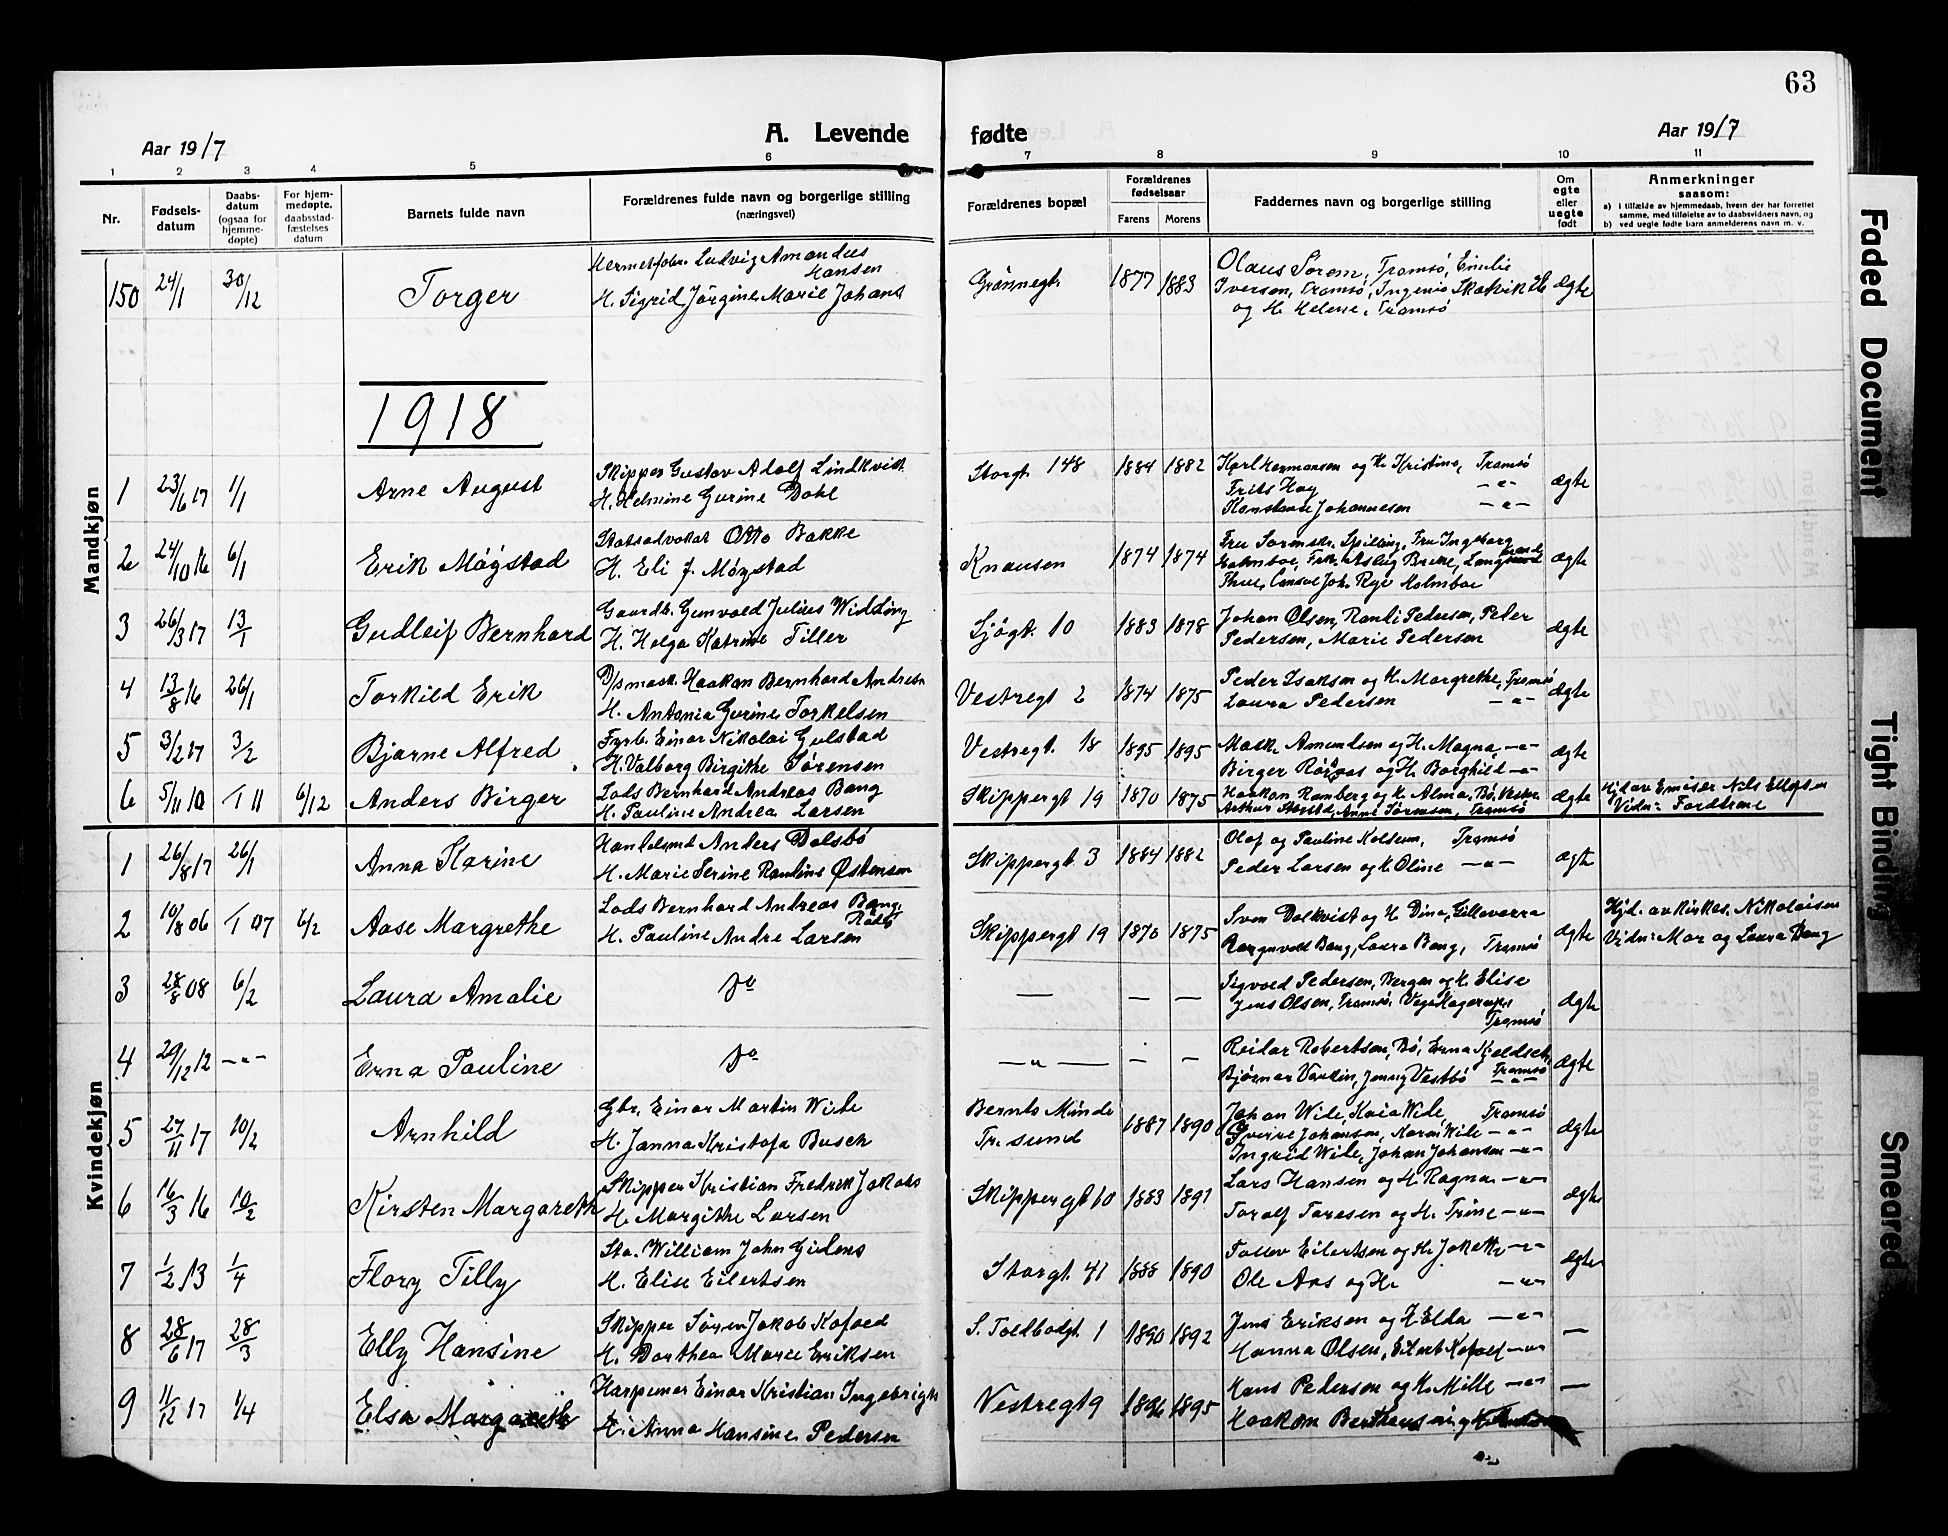 63
Aar 1917
A. Levende
fødte
Aar 1917
1 2 3 4 5 6 7 8 9 10 11
Nr.
Fødsels-
datum
Daabs-
datum
(ogsaa for
hjemme-
døpte)
For hjem-
medøpte,
daabsstad-
fæstelses
datum
Barnets fulde navn
Forældrenes fulde navn og borgerlige stilling
(næringsvei)
Forældrenes bopæl
Forældrenes
fødselsaar
Farens Morens
Faddernes navn og borgerlige stilling
Om
egte
eller
uegte
født
Anmerkninger
saasom:
a) i tilfælde av hjemmedaab, hvem der har forrettet
samme, med tilføielse av to daabsvidners navn, og
b) ved uegte fødte barn anmelderens navn m. v.
Mandkjøn
150 24/1 30/12 Torger
Hermetfabr. Ludvig Amandus
Hansen
H. Sigrid Jørgine Marie Johans
Grønnegt. 1877 1883
Olaus Sørem, Tromsø, Emilie
Iversen, Tromsø, Ingeniø Skatvik
og H. Helene, Tromsø
Ægte
1918
1 23/6 17 1/1 Arne August
Skipper Gustav Adolf Lindkvist
H. Helmine Gurine Dahl
Storgt 148 1884 1882
Karl Hermansen og H. Kristine, Tromsø
Frits Hay -"-
Konstanse Johannesen -"-
Ægte
2 24/10 16 6/1 Erik Møystad
Statsadvokat Otto Bakke
H. Eli f. Møystad
Knausen 1874 1874
Fru Sorenskr. Spilling, Fru Ingeborg
Holmboe, Frk. Aslug Brekke,
Thue, Consul Joh. Rye Holmboe
Ægte
3 26/3 17 13/1 Gudleif Bernhard
Gaardb. Gunvald Julius Widding
H. Helga Katrine Tiller
Sjøgt. 10 1883 1878
Johan Olsen, Randi Pedersen, Peter
Pedersen, Marie Pedersen
Ægte
4 13/8 16 26/1 Torkild Erik
D/s mask. Haakon Bernhard Andresen
H. Antonia Gurine Torkelsen
Vestregt 2 1874 1875
Peder Isaksen og H. Margrethe, Tromsø
Laura Pedersen -"-
Ægte
5 3/2 17 3/2 Bjarne Alfred
Fyrb. Einar Nikolai Gulstad
H. Valborg Birgithe Sørensen
Vestregt. 18 1895 1895
Mask. Amundsen og H. Magna, -"-
Birger Røraas og H. Borghild -"-
Ægte
6 5/11 10 T 11 6/12 Anders Birger
Lods Bernhard Andreas Bang
H. Pauline Andrea Larsen
Skippergt 19 1870 1875
Haakon Ramberg og H. Alma, Bø, Vester.
Arthur Anne Sørensen, Tromsø
Ægte
Hjd av Emisær Nils Ellefsen
Vidn: Fordtrene
Kvindekjøn
1 26/8 17 26/1 Anna Karine
Handelsmd Anders Dalsbø
H. Marie Serine Pauline Østensen
Skippergt. 3 1884 1882
Olaf og Pauline Koldsum, Tromsø
Peder Larsen og H. Oline -"-
Ægte
2 10/8 06 T 07 6/2 Aase Margrethe
Lods Bernhard Andreas Bang
H. Pauline Andre Larsen
Skippergt 19 1870 1875
Sven Dalkvist og H Dina, Gillevarra
Ragnvald Bang, Laura Bang, Tromsø
Ægte
Hjd. av Kirkes. Nikolaisen
Vidn: Mor og Laura Bang
3 28/8 08 6/2 Laura Amalie
Do
— — —
Sigvald Pedersen, Bergen og H. Elise
Jens Olsen, Tromsø,
Tromsø
Ægte
4 29/12 12 -"- Erna Pauline
Do
—"— — —
Reidar Robertsen, Bø, Erna Kjeldsen,
Bjørnar Vardin, Jenny Vestbø Tromsø
-"-
Ægte
5 27/11 17 10/2 Arnhild
Gbr. Einar Martin Wile
H. Janna Kristofa Busch
Bernts Minde
Tr.sund
1887 1890
Johan Wile, Kaia Wile Tromsø
Sverre Johansen, Karen Wile -"-
Ingrid Wile, Johan Johansen -"-
Ægte
6 16/3 16 10/2 Kirsten Margareth
Skipper Kristian Fredrik Jakobs
H. Margithe Larsen
Skippergt 10 1883 1891
Lars Hansen og H. Ragna -"-
Toralf Toresen og H. Trine -"-
Ægte
7 1/2 13 1/4 Flory Tilly
Sta. William John Giæver
H. Elise Eilertsen
Storgt. 41 1888 1890
Tollev Eilertsen og H. -"-
Ole Aas og H. -"-
Ægte
8 28/6 17 28/3 Elly Hansine
Skipper Søren Jakob Kofoed
H. Dorthea Marie Eriksen
S. Toldbodgt 1 1890 1892
Jens Eriksen og H Elda -"-
Hanna Olsen, Eilert Kofoed -"-
—
9 11/12 17 1/4 Elsa Margareth
Harpuner Einar Kristian Ingebrigts
H. Anna Hansine Pedersen
Vestregt 9 1896 1895
Hans Pedersen og H. Mille -"-
Haakon Bertheussen og H.
—
-"-
Faded Document
Tight Binding
Smeared